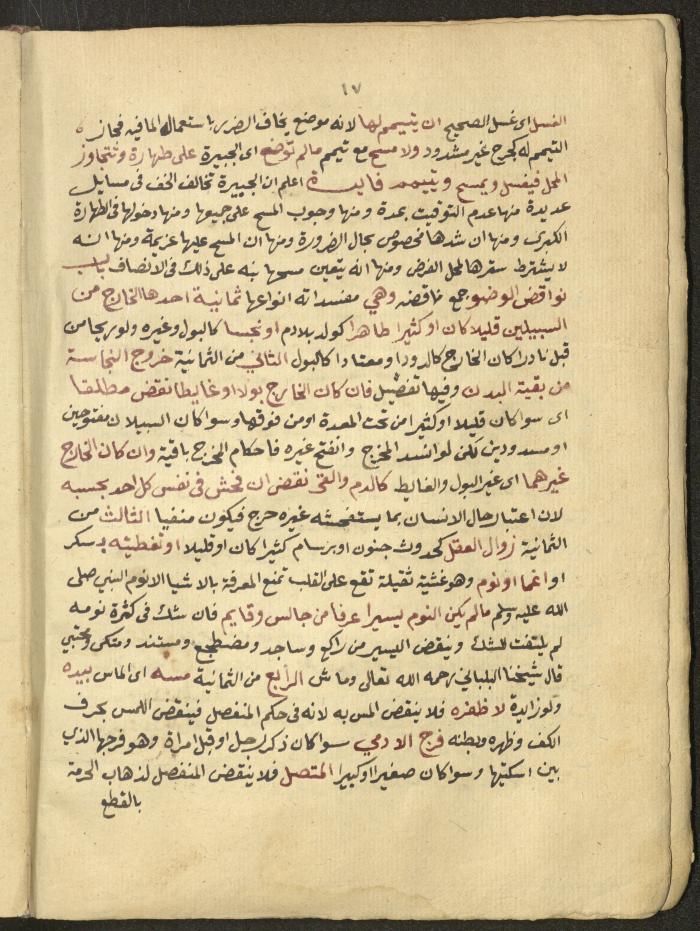 ١٧
الغسل اى غسل الصحيح ان يتيمم لها لانه موضع يخاف الضرر باستعمال الما فيه فجاز
التيمم له كجرح غير مشدود ولا مسح مع تيمم مالم توضع اى الجبيرة على طهارة وتتجاوز
المحل فيغسل ويمسح ويتيمم فايدة اعلم ان الجبيرة تخالف الخف فى مسايل
عديدة منها عدم التوقيت بمدة ومنها وجوب المسح على جميعها ومنها دخولها فى الطهارة
الكبرى ومنها ان شدها مخصوص بحال الضرورة ومنها ان المسح عليها عزيمة ومنها انه
لا يشترط سترها لمحل الفرض ومنها انه يتعين مسحها نبه على ذلك فى الانصاف باب
نواقض الوضو جمع ناقضه وهي مفسداته انواعها ثمانية احدها الخارج من
السبيلين قليلا كان او كثيرا طاهرا كولد بلا دم او نجسا كالبول وغيره ولو ريحا من
قبل نادرا كان الخارج كالدود او معتادا كالبول الثاني من الثمانية خروج النجاسة
من بقية البدن وفيها تفصيل فان كان الخارج بولا او غايطا نقض مطلقا
اى سوا كان قليلا او كثيرا من تحت المعدة او من فوقها وسوا كان السبيلان مفتوحين
او مسدودين لكن لو انسد المخرج وانفتح غيره فاحكام المخرج باقية وان كان الخارج
غيرهما اى غير البول والغايط كالدم والقى نقض ان فحش فى نفس كل احد بحسبه
لان اعتبار حال الانسان بما يستفحشه غيره حرج فيكون منفيا الثالث من
الثمانية زوال العقل كحدوث جنون او برسام كثيرا كان او قليلا او تغطيته بسكر
او اغما او نوم وهو غشية ثقيلة تقع على القلب تمنع المعرفة بالاشيا الا نوم النبي صلى
الله عليه وسلم مالم يكن النوم يسيرا عرفا من جالس وقايم فان شك فى كثرة نومه
لم يلتفت للشك وينقض اليسير من راكع وساجد ومضطجع ومستند ومتكى ومحتبي
قال شيخنا البلباني رحمه الله تعالى وماش الرابع من الثمانية مسه اى الماس بيده
ولو زايدة لا ظفره فلا ينقض المس به لانه فى حكم المنفصل فينقض اللمس بحرف
الكف وظهره وبطنه فرج الادمي سوا كان ذكر رجل او قبل امراة وهو فرجها الذي
بين اسكتيها وسوا كان صغيرا او كبيرا المتصل فلا ينقض المنفصل لذهاب الحرمة
بالقطع